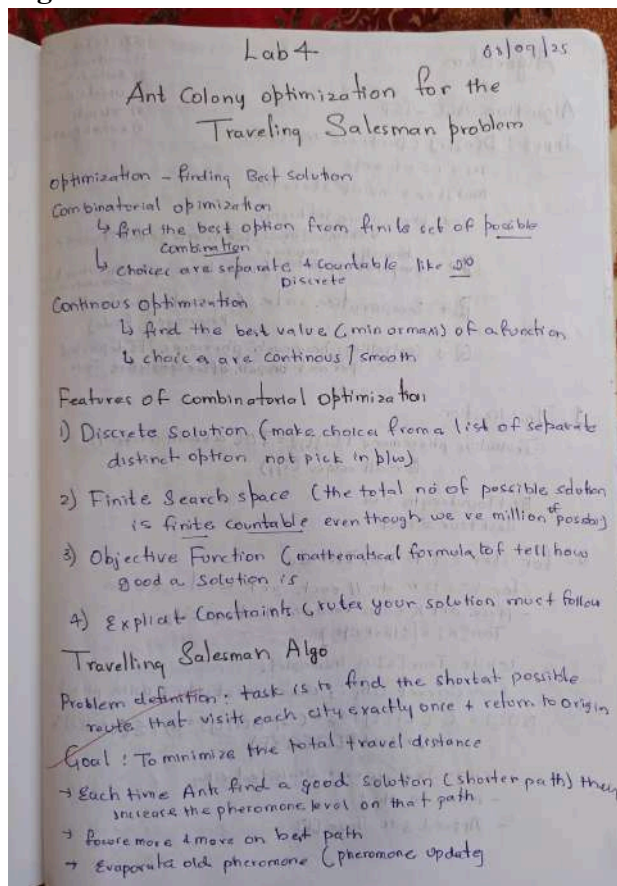 Lab 4
03/09/25
Ant Colony optimization for the
Traveling Salesman problem
optimization - finding Best solution
Combinatorial opimization
↳ find the best option from finite set of possible
combination
↳ choices are separate & countable like
Discrete
Continous optimization
↳ find the best value (min or max) of a function
↳ choice are continous / smooth
Features of combinatorial optimization
1) Discrete Solution (make choice from a list of separate
distinct option not pick in b/w)
2) Finite Search space (the total no of possible solution
is finite countable even though we ve million of
3) Objective Function (mathematical formula to tell how
good a solution is
4) Explicit Constraints (rules your solution must follow
Travelling Salesman Algo
Problem definition: task is to find the shortest possible
route that visits each city exactly once & return to origin
Goal : To minimize the total travel distance
→ Each time Ants find a good solution (shorter path) they
increase the pheromone level on that path
→ more & more on best path
→ Evaporate old pheromone (pheromone update)